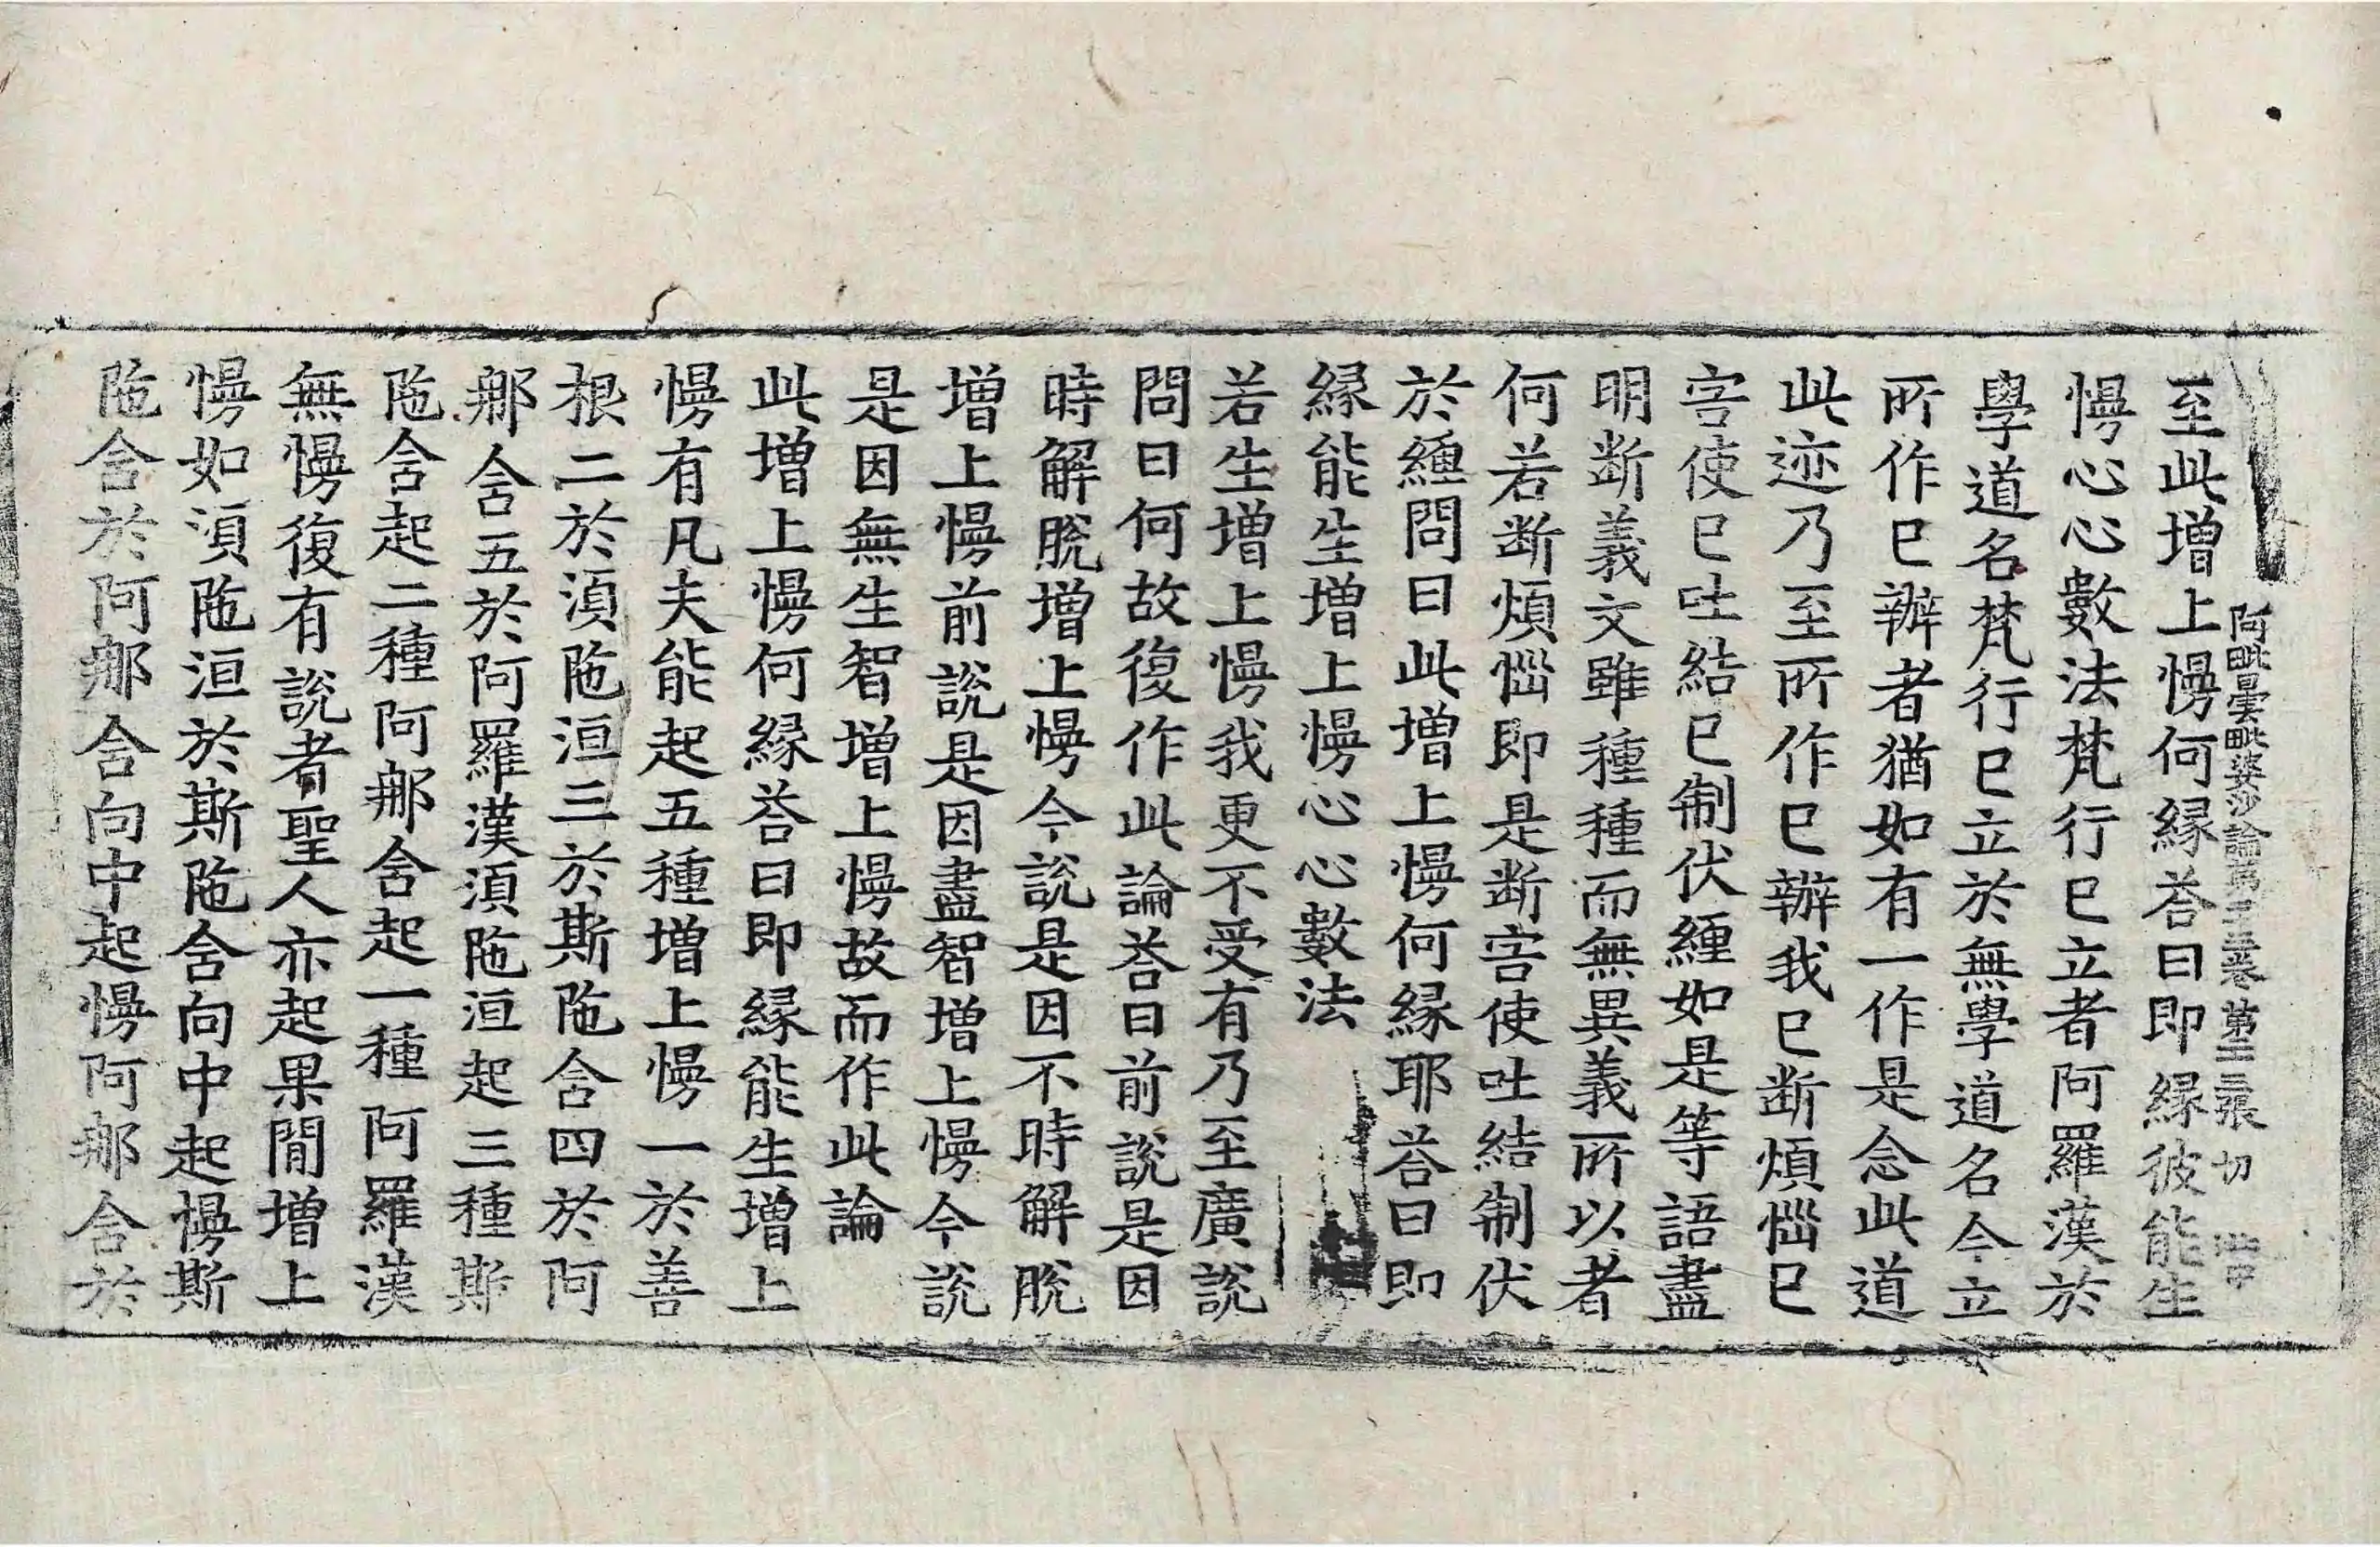 阿毗曇毗婆沙論第二十三卷 第二三張 切
至此増上慢何縁荅曰即縁彼能生
慢心心數法梵行已立者阿羅漢於
學道名梵行已立於無學道名今立
所作已辦者猶如有一作是念此道
此迹乃至所作已辦我已断煩惱已
害使已吐結已制伏纏如是等語盡
明断義文雖種種而無異義所以者
何若断煩惱即是断害使吐結制伏
於纏問曰此増上慢何縁耶荅曰即
縁能生増上慢心心數法
若生増上慢我更不受有乃至廣説
問曰何故復作此論荅曰前説是因
時解脫増上慢今説是因不時解脫
増上慢前説是因盡智増上慢今説
是因無生智増上慢故而作此論
此増上慢何縁荅曰即縁能生増上
慢有凡夫能起五種増上慢一於善
根二於湏陁洹三於斯陁含四於阿
那含五於阿羅漢湏陁洹起三種斯
陁含起二種阿那含起一種阿羅漢
無慢復有説者聖人亦起果閒増上
慢如湏陁洹於斯陁含向中起慢斯
陁含於阿那含向中起慢阿那含於